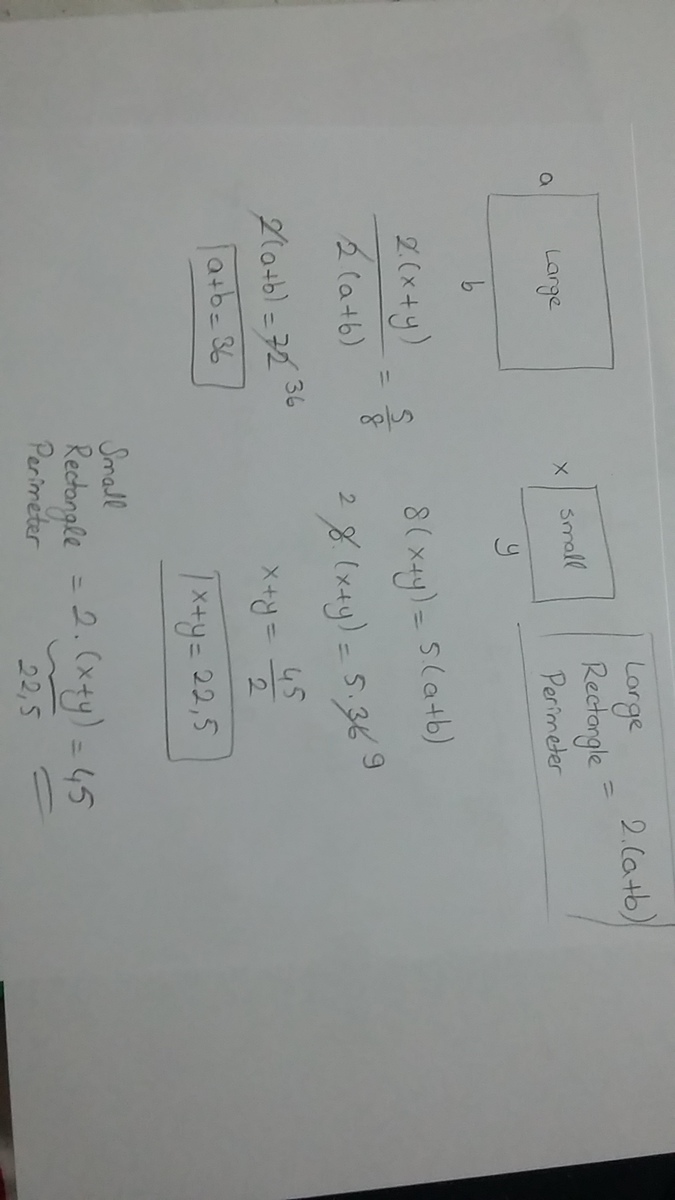 a
Large
b
x
small
y
Large
Rectangle = 2.(a+b)
Perimeter
2.(x+y)
2(a+b)
= 5/8
8(x+y) = 5.(a+b)
2 8.(x+y) = 5.36 9
2(a+b) = 72 36
x+y = 45/2
a+b = 36
x+y = 22,5
Small
Rectangle = 2.(x+y) = 45
Perimeter
22,5